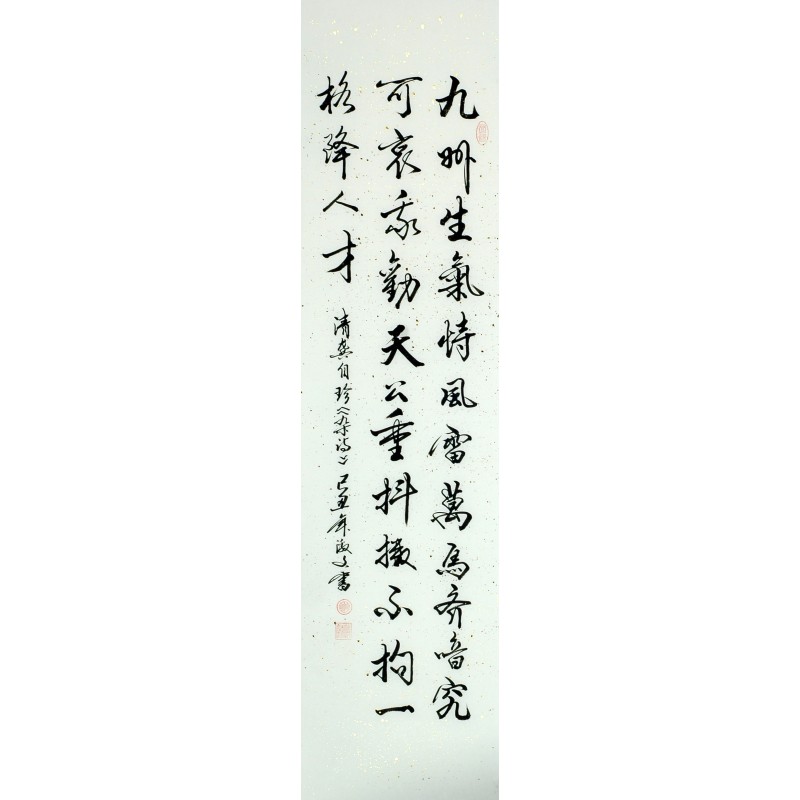 九州生氣恃風雷萬馬齐喑究
可哀我勸天公重抖擻不拘一
格降人才
清龚自珍《杂诗》己丑年書